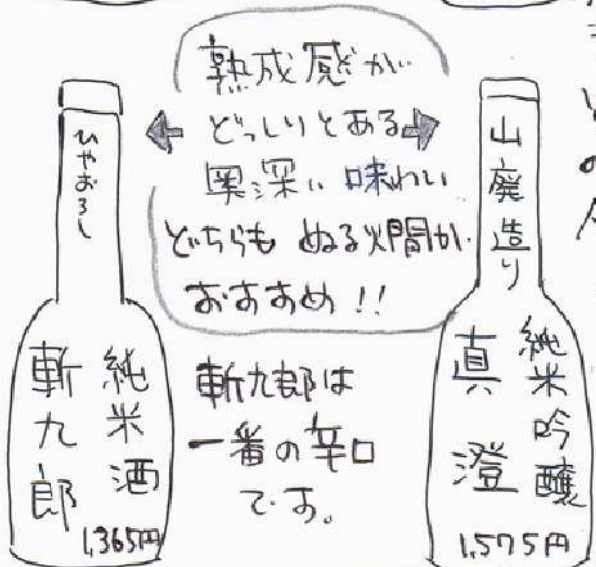 熟成感が
どっしりとある
奥深い味わい
どちらもぬる燗が
おすすめ!!
ひやおろし
純米酒
斬九郎
1,365円
斬九郎は
一番の辛口
です。
山廃造り
純米吟醸
真澄
1,575円